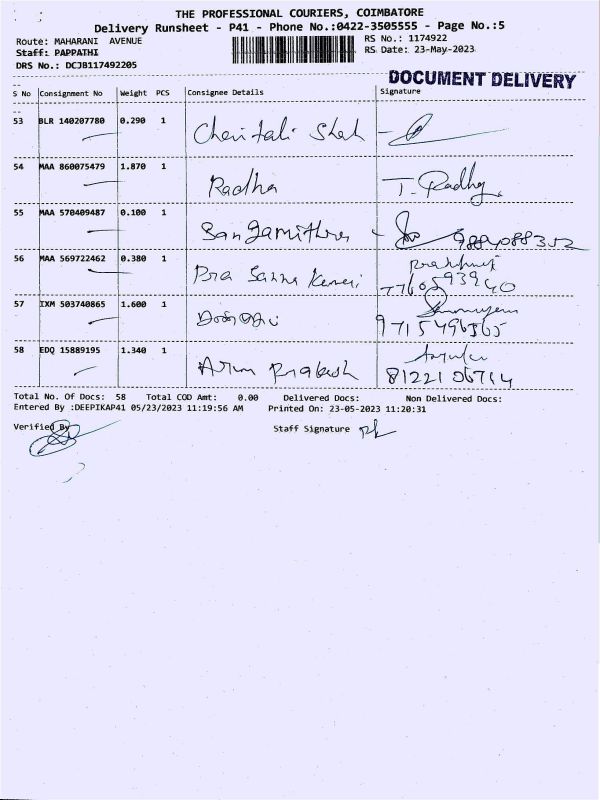 THE PROFESSIONAL COURIERS, COIMBATORE
Delivery Runsheet - P41 - Phone No.:0422-3505555 - Page No.:5
Route: MAHARANI AVENUE RS No.: 1174922
Staff: PAPPATHI RS Date: 23-May-2023
DRS No.: DCJB117492205
DOCUMENT DELIVERY
S No Consignment No Weight PCS Consignee Details Signature
53 BLR 140207780 0.290 1 Chaitali Shah
54 MAA 860075479 1.870 1 Radha T. Radhy
55 MAA 570409487 0.100 1 Sangamithra
56 MAA 569722462 0.380 1 Pra Sanna
57 IXM 503740865 1.600 1
9715496565
58 EDQ 15889195 1.340 1 Arun Prakash
8122106714
Total No. Of Docs: 58 Total COD Amt: 0.00 Delivered Docs: Non Delivered Docs:
Entered By :DEEPIKAP41 05/23/2023 11:19:56 AM Printed On: 23-05-2023 11:20:31
Verified By Staff Signature